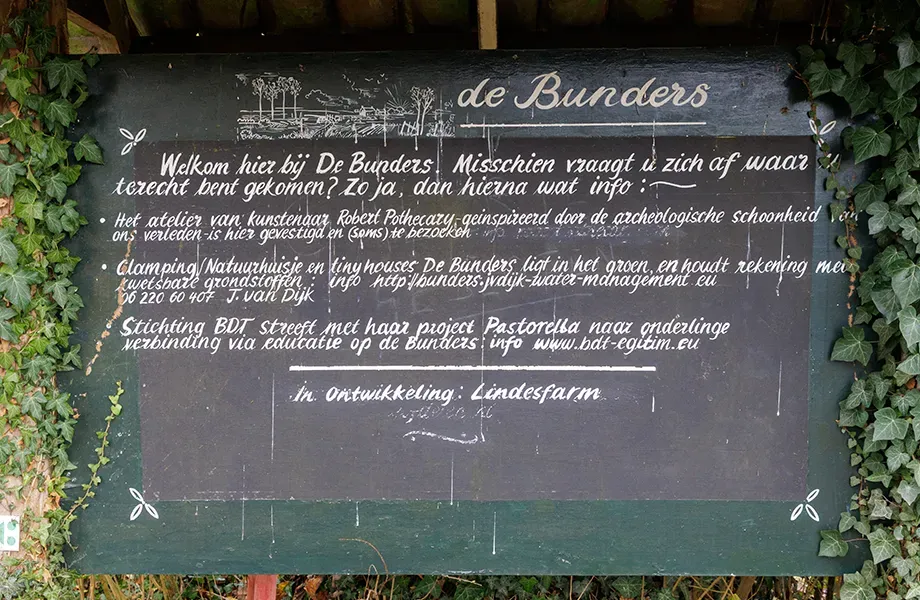 de Bunders
Welkom hier bij De Bunders! Misschien vraagt u zich af waar u
terecht bent gekomen? Zo ja, dan hierna wat info:
• Het atelier van kunstenaar Robert Pothecary-geïnspireerd door de archeologische schoonheid van
ons verleden-is hier gevestigd en (soms) te bezoeken
• Glamping/Natuurhuisje en tiny houses De Bunders ligt in het groen, en houdt rekening met
kwetsbare grondstoffen. info http://bunders.jvdijk-water-management.eu
06 220 60 407 J. van Dijk
Stichting BDT streeft met haar project Pastorella naar onderlinge
verbinding via educatie op de Bunders: info www.bdt-egitim.eu
In ontwikkeling: Lindesfarm